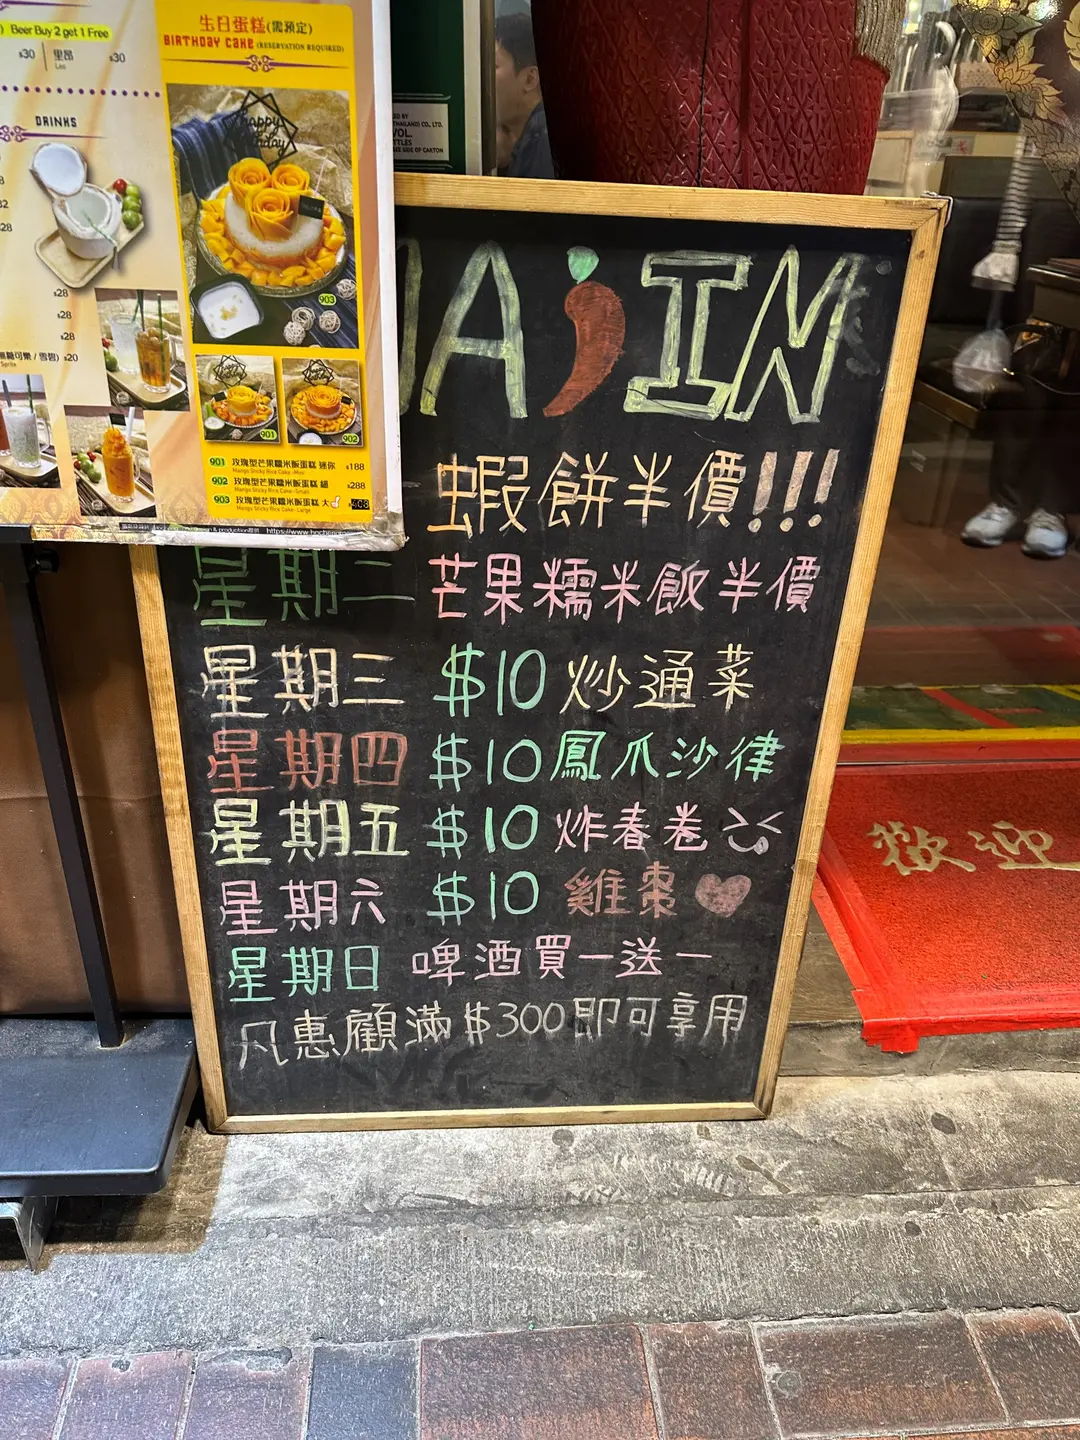 Beer Buy 2 get 1 Free
$30 里昂 $30
Leo
DRINKS
$28
$28
$28
無糖可樂 / 雪碧) $20
Sprite
生日蛋糕(需預定)
BIRTHDAY CAKE (RESERVATION REQUIRED)
happy
903
901
902
901 玫瑰型芒果糯米飯蛋糕 迷你 $188
Mango Sticky Rice Cake -Mini
902 玫瑰型芒果糯米飯蛋糕 細 $288
Mango Sticky Rice Cake -Small
903 玫瑰型芒果糯米飯蛋糕 大
Mango Sticky Rice Cake -Large
(THAILAND) CO., LTD.
SEE SIDE OF CARTON
IN
蝦餅半價!!!
星期二 芒果糯米飯半價
星期三 $10 炒通菜
星期四 $10 鳳爪沙律
星期五 $10 炸春卷
星期六 $10 雞棗
星期日 啤酒買一送一
凡惠顧滿$300即可享用
歡迎